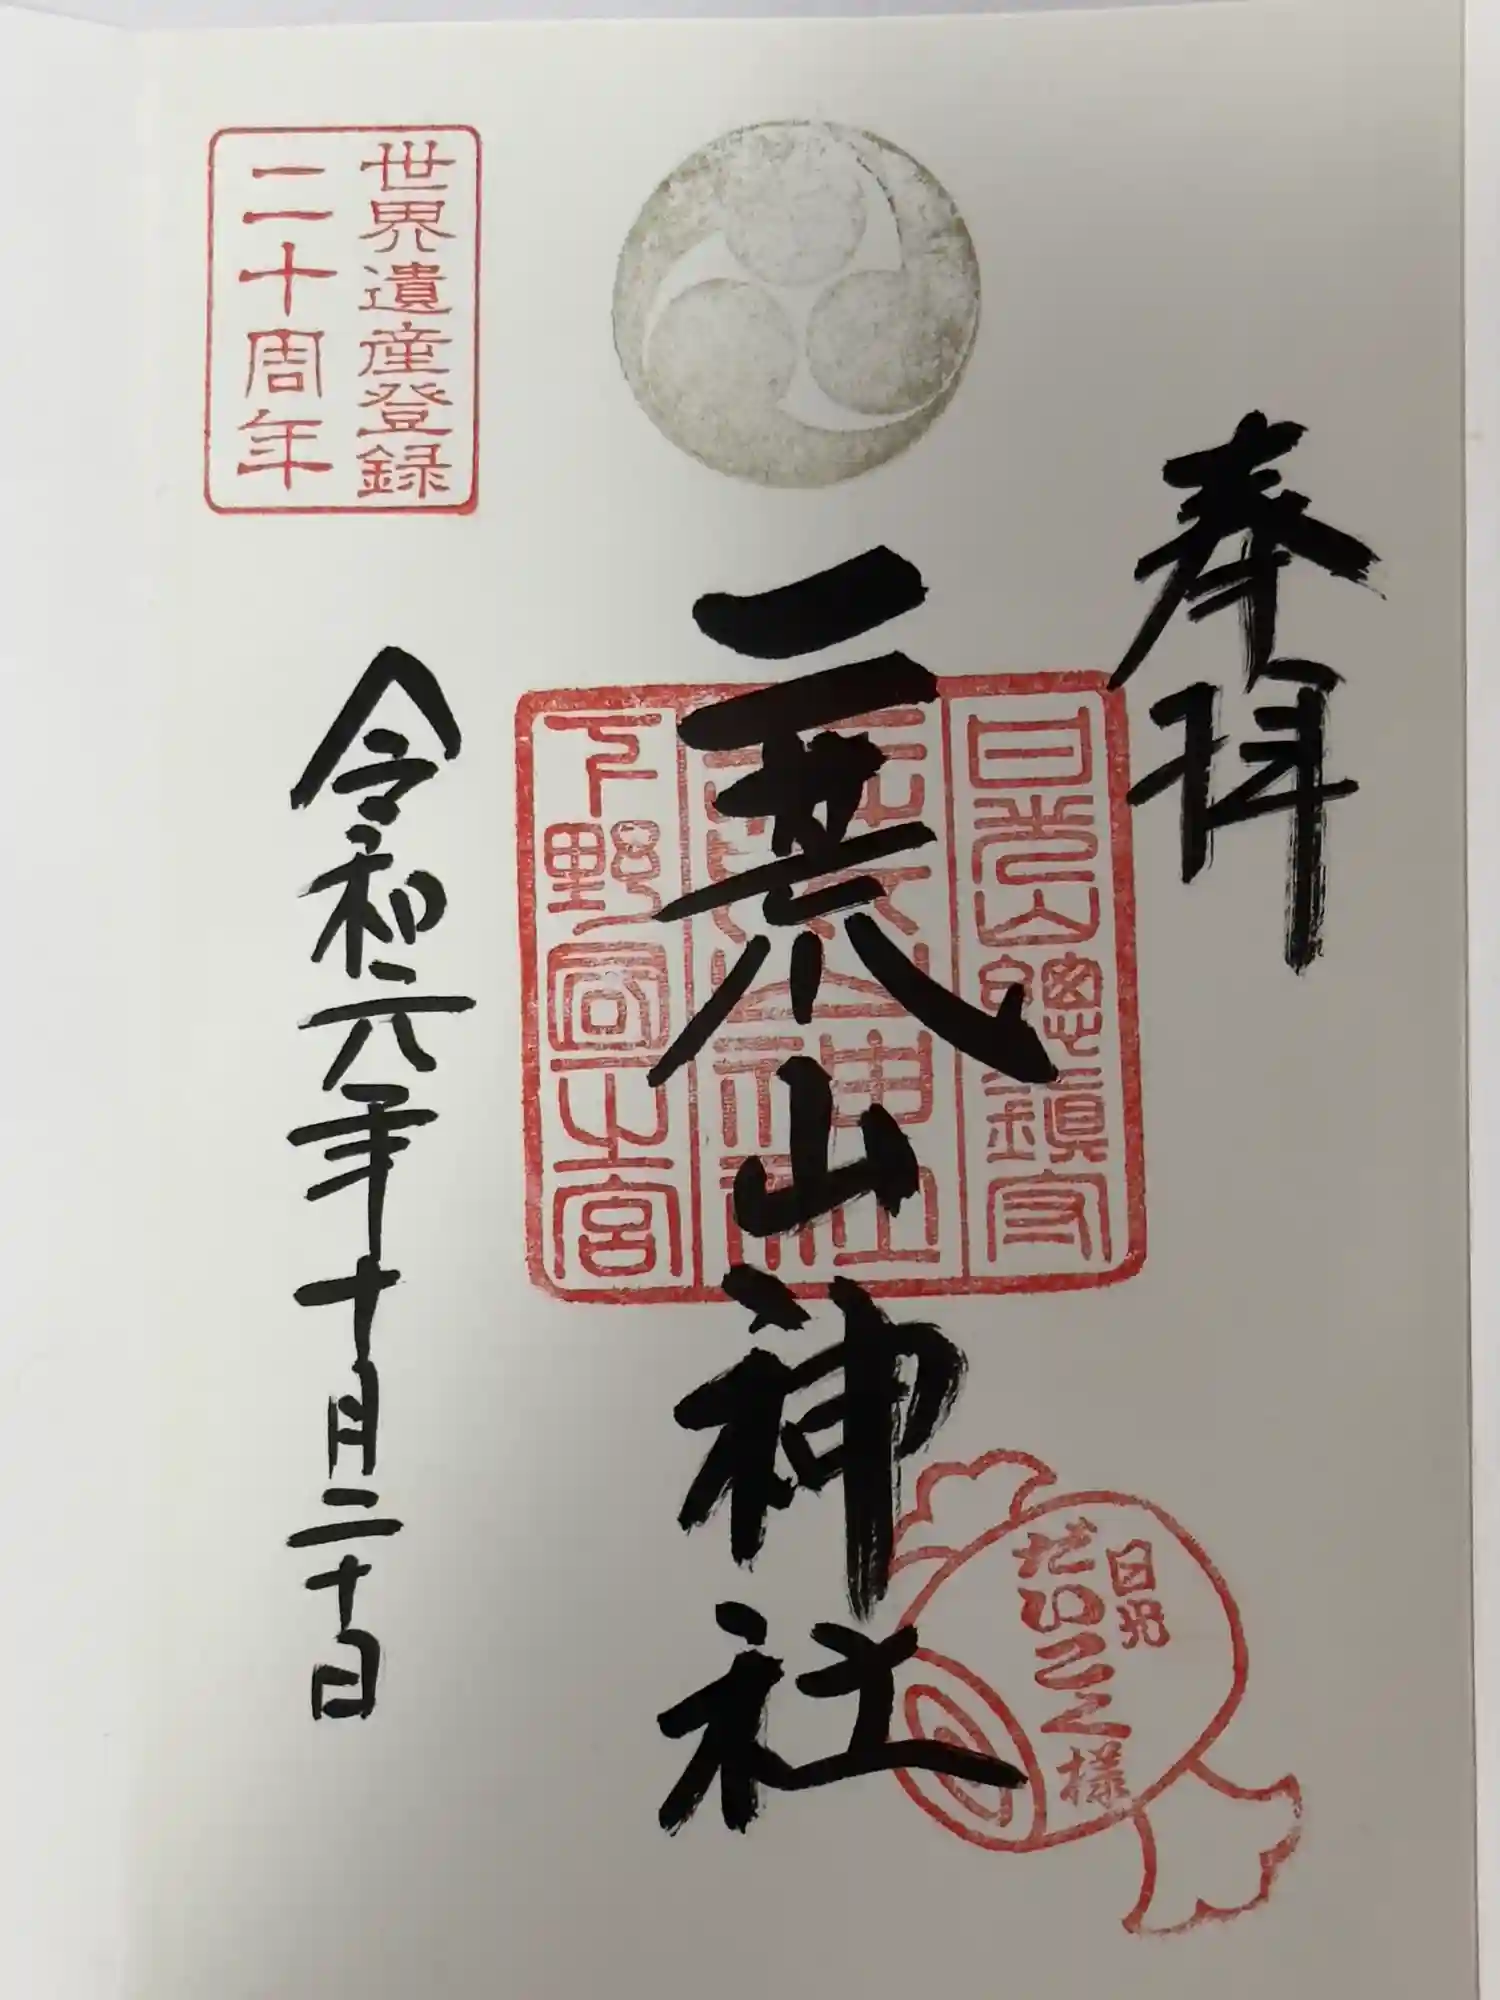 奉拝
日光山總鎮守
下野國一之宮
二荒山神社
日光
だいこく様
世界遺産登録
二十周年
令和元年十月二十日